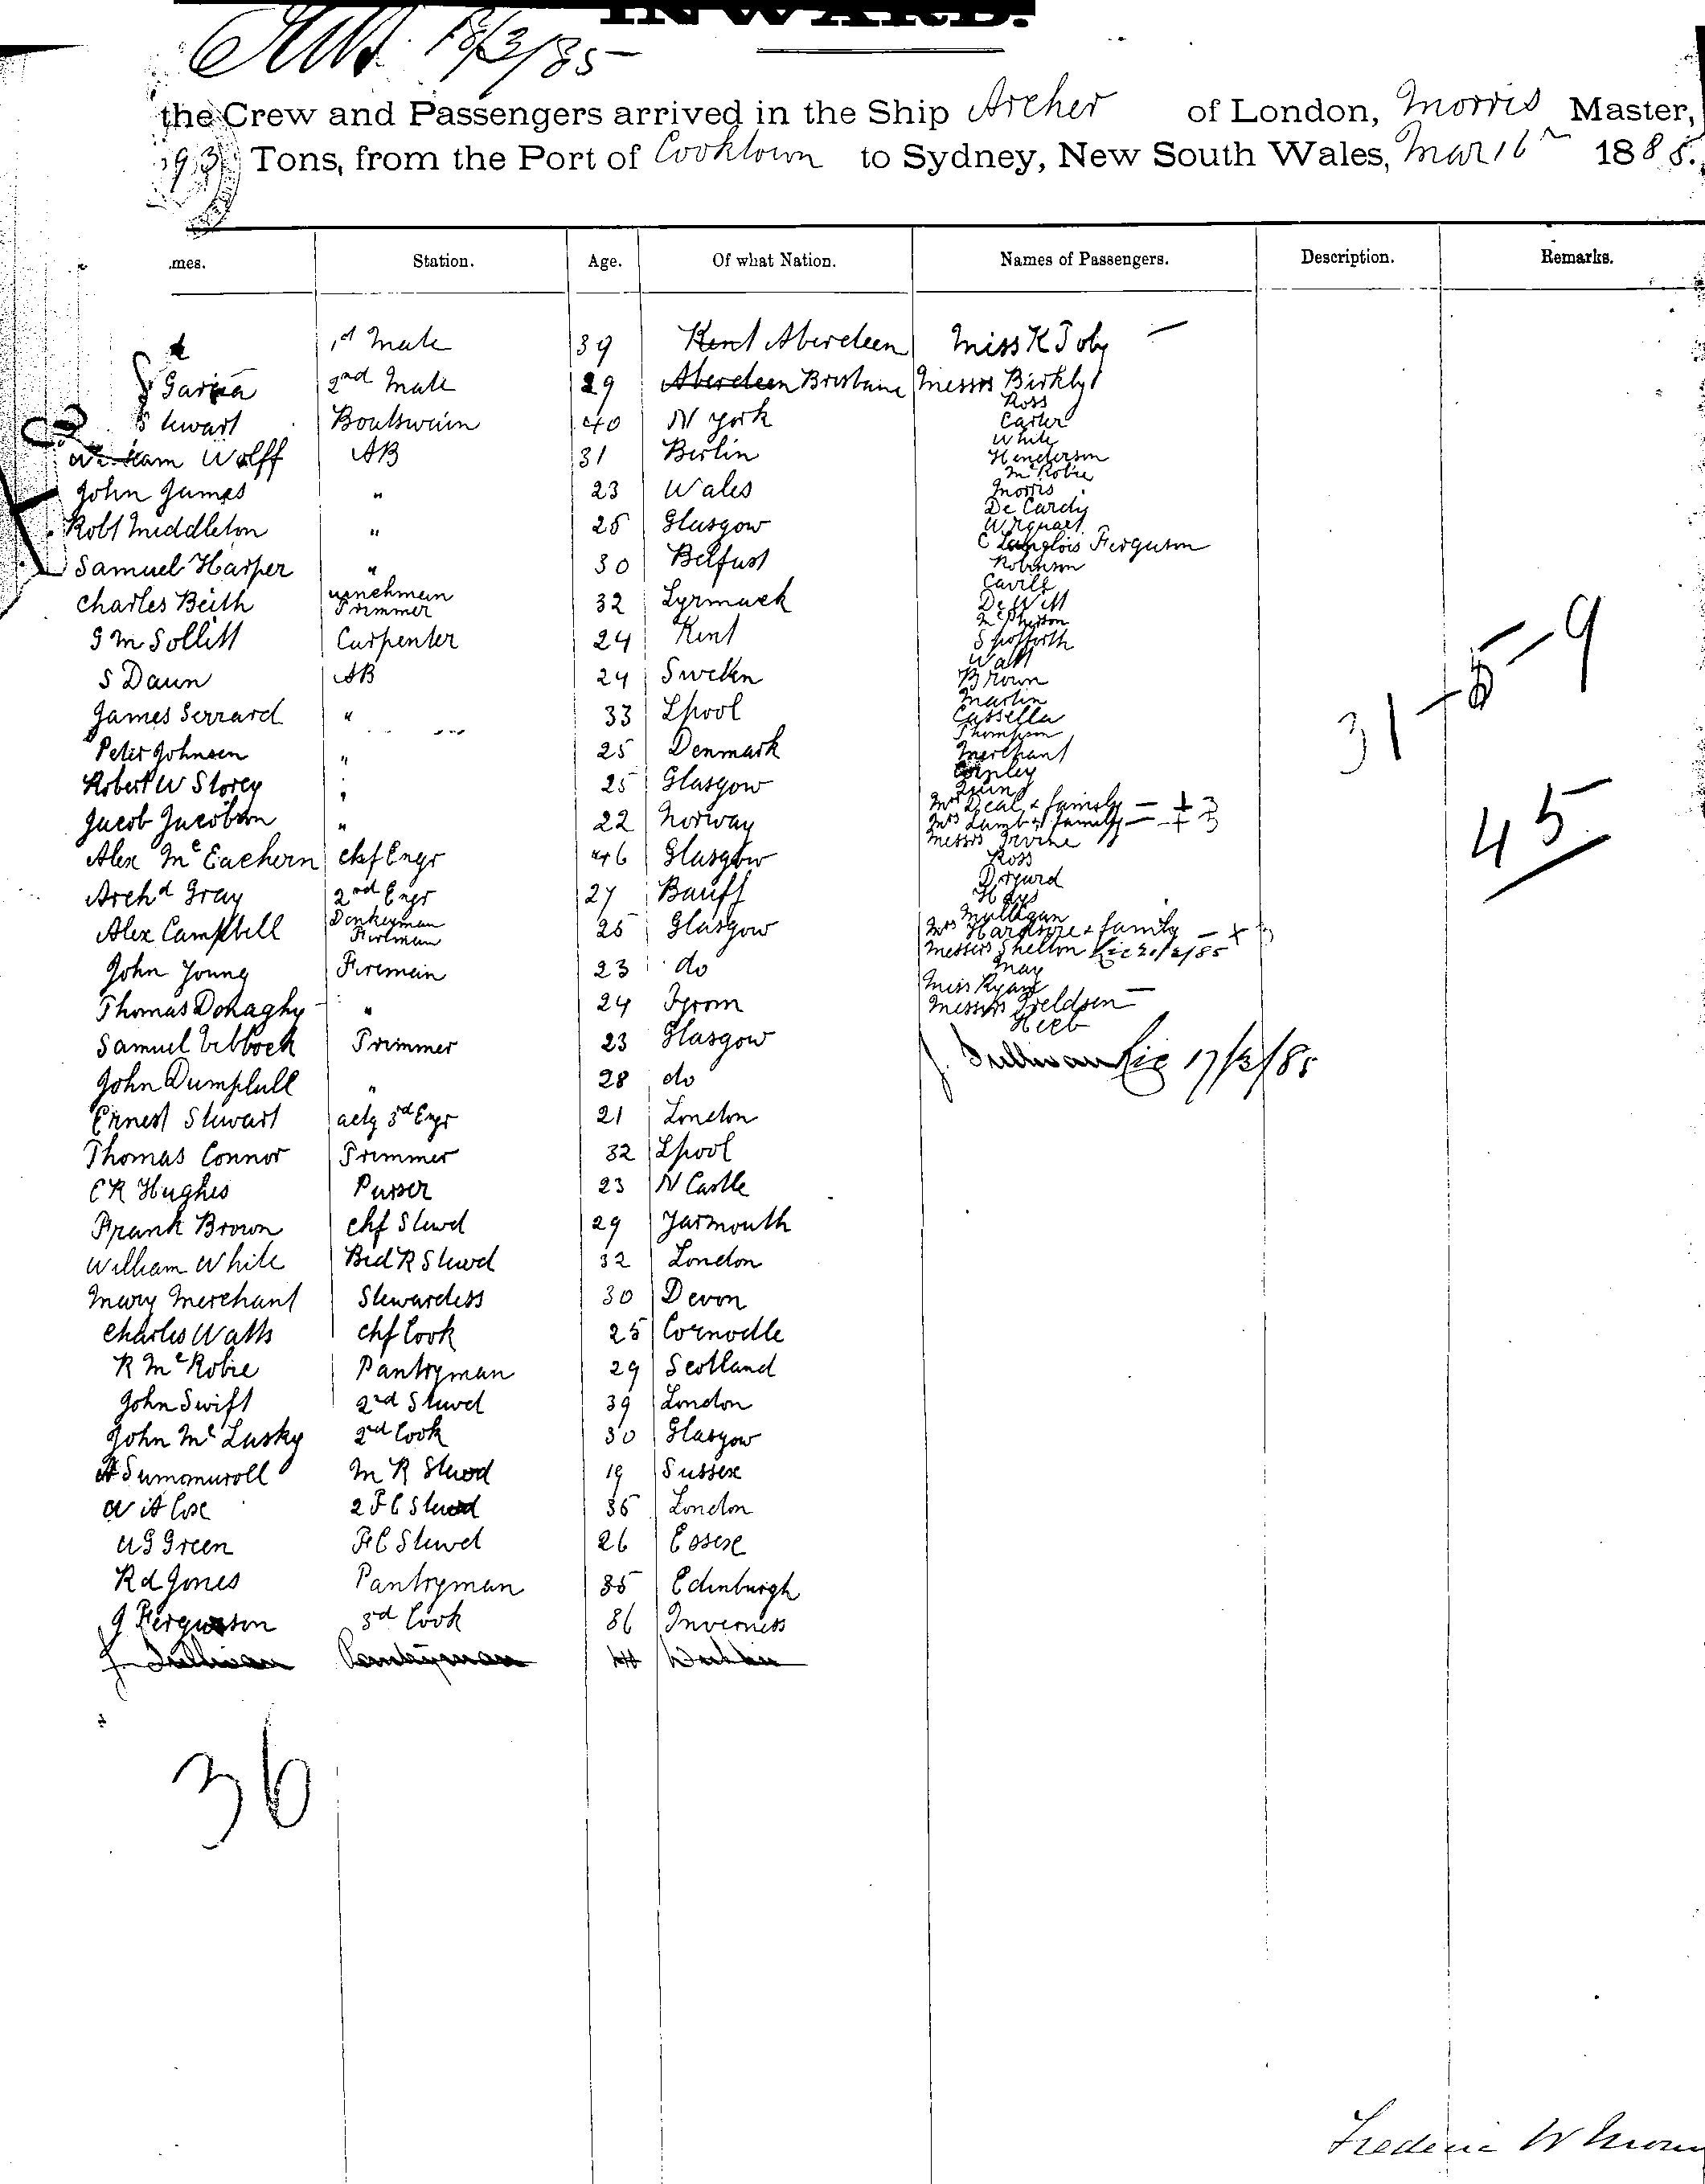 INWARD.
18/3/85
the Crew and Passengers arrived in the Ship Archer of London, Morris Master,
Tons, from the Port of Cooktown to Sydney, New South Wales, Mar 16th 1885.
mes. Station. Age. Of what Nation. Names of Passengers. Description. Remarks.
1st Mate 39 Kent Aberdeen Miss K Toby —
2nd Mate 29 Aberdeen Brisbane Messrs Birkby
Ross
Stewart Boatswain 40 N York Carter
White
William Wolff AB 31 Berlin Henderson
McRobie
John James " 23 Wales Morris
De Cardy
Robt Middleton " 25 Glasgow Urquart
C Langlois Ferguson
Samuel Harper " 30 Belfast Robinson
Cavill
Charles Beith Trimmer 32 De Witt
McPherson
G M Sollitt Carpenter 24 Kent Spofforth
Watt
S Daun AB 24 Sweden Brown
Martin
James Serrard " 33 Lpool Cassella
Thompson
Peter Johnsen " 25 Denmark Merchant
Robert W Storey " 25 Glasgow Quinn
Mrs Deal & family — + 3
Jacob Jacobson " 22 Norway Mrs Lamb & family — + 3
Messrs Irvine
Alex McEachern chf Engr 46 Glasgow Ross
Archd Gray 2nd Engr 27 Banff Hays
Mulligan
Alex Campbell Donkeyman Fireman 25 Glasgow Mrs Hardgire & family — + 3
Messrs Shelton
John Young Fireman 23 do May
Miss Ryan —
Thomas Donaghy " 24 Messrs
Samuel Trimmer 23 Glasgow
J. Sullivan 17/3/85
John Dumphull " 28 do
Ernest Stewart actg 3rd Engr 21 London
Thomas Connor Trimmer 32 Lpool
C R Hughes Purser 23 N Castle
Frank Brown chf Stewd 29 Yarmouth
William White Bed R Stewd 32 London
Mary Merchant Stewardess 30 Devon
Charles Watts chf Cook 25 Cornwelle
R McRobie Pantryman 29 Scotland
John Swift 2nd Stewd 39 London
John McLusky 2nd Cook 30 Glasgow
M R Stewd 19 Sussex
W A Cox 2 F C Stewd 35 London
W G Green F C Stewd 26 Essex
Rd Jones Pantryman 35 Edinburgh
J Ferguson 3rd Cook 36 Inverness
J. Sullivan Pantryman
31 – 5 – 9
45
36
Frederic W